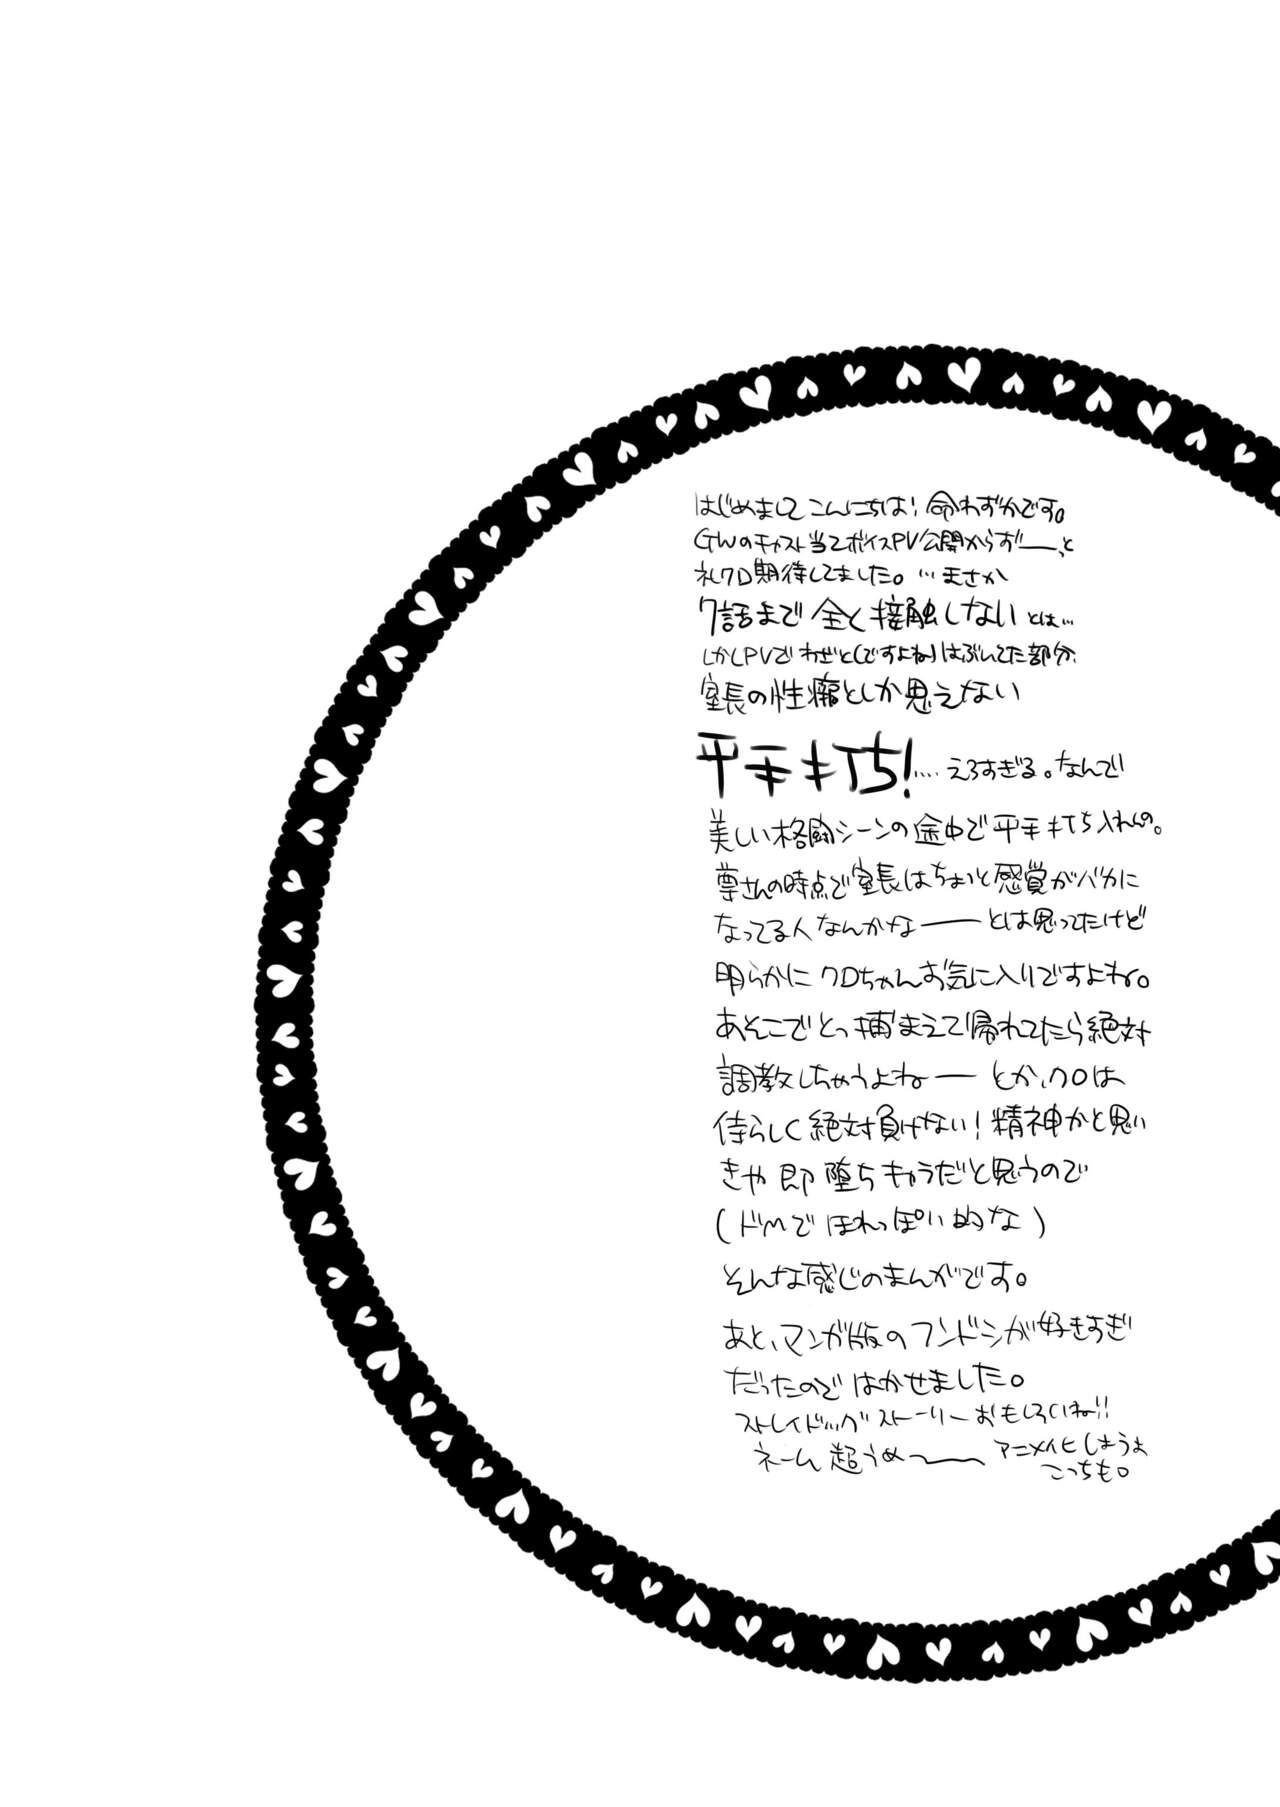 はじめましてこんにちは！命わずかです。
GWのキャスト当てボイスPV公開からずーーっと
礼クロ期待してました。…まさか
7話まで全く接触しないとは…
しかしPVでわざと(ですよね)はぶいてた部分、
室長の性癖としか思えない
平手打ち！…えろすぎる。なんで
美しい格闘シーンの途中で平手打ち入れんの。
尊さんの時点で室長はちょっと感覚がバカに
なってる人なんかなーーとは思ってたけど
明らかにクロちゃんお気に入りですよね。
あそこでとっ捕まえて帰れてたら絶対
調教しちゃうよねーー とか、クロは
侍らしく絶対負けない！精神かと思い
きや即堕ちキャラだと思うので
(ドMでほれっぽい的な)
そんな感じのまんがです。
あと、マンガ版のフンドシが好きすぎ
だったのではかせました。
ストレイドッグストーリーおもしろいね!!
ネーム超うめ〜〜 アニメイヒしようよ
こっちも。